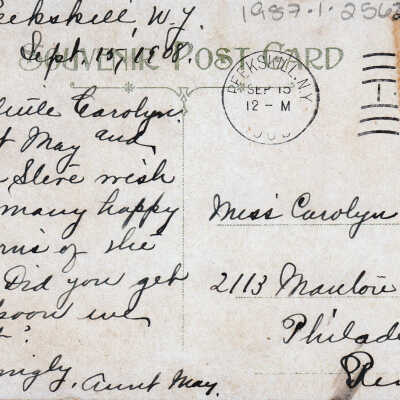 eekskill N.Y.
1987.1.256
Sept. 15, 1908.
SOUVENIR POST CARD
PEEKSKILL, N.Y.
SEP 15
12-M
1908
Little Carolyn.
t May and
Steve wish
many happy
rns of the
Did you get
spoon we
t?
ingly, Aunt May.
Miss Carolyn
2113
Philade